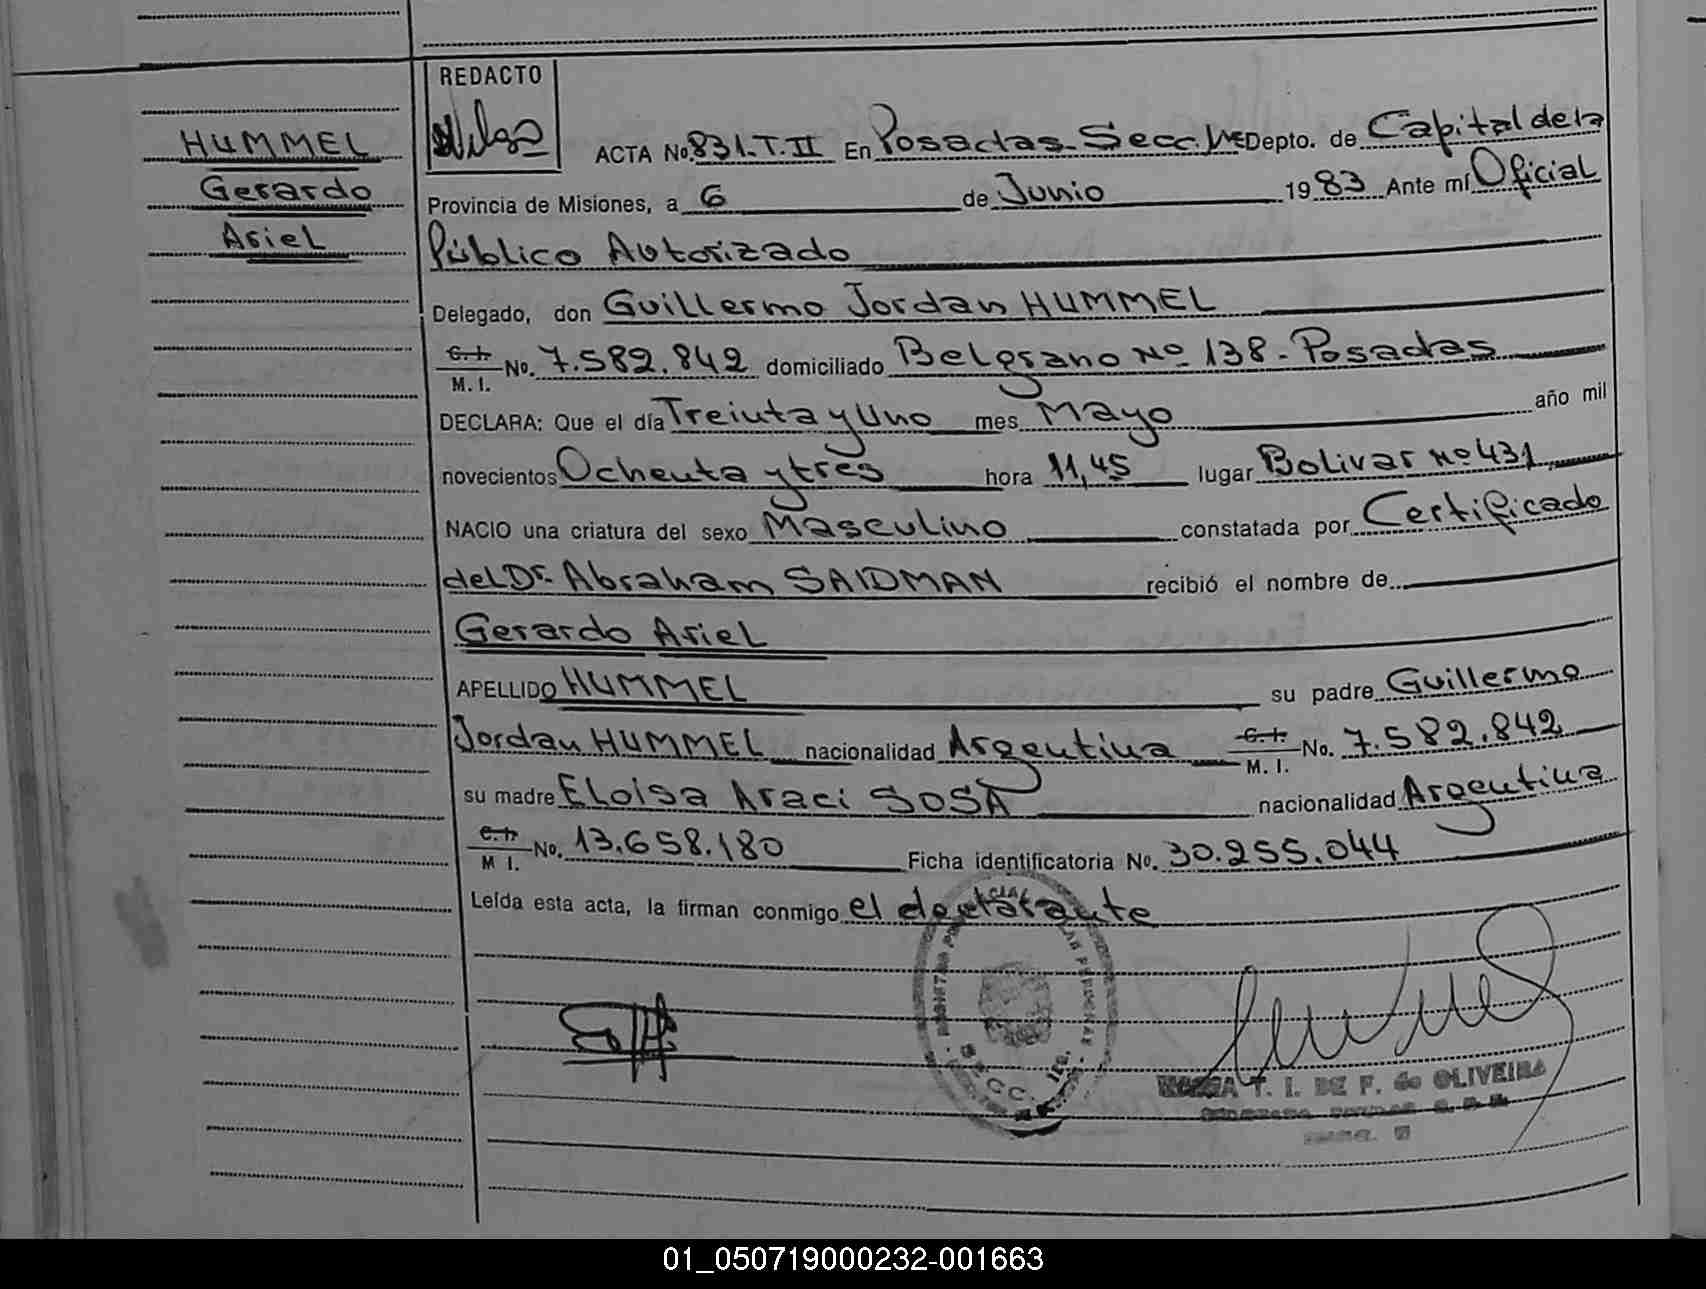 HUMMEL
Gerardo
Ariel
REDACTO
ACTA No. 831.T.II En Posadas-Secc. Depto. de Capital de la
Provincia de Misiones, a 6 de Junio 1983 Ante mí Oficial
Público Autorizado
Delegado, don Guillermo Jordan HUMMEL
C.I. M.I. No. 7.582.842 domiciliado Belgrano Nº 138-Posadas
DECLARA: Que el día Treinta y Uno mes Mayo año mil
novecientos Ochenta y tres hora 11,45 lugar Bolivar Nº 431
NACIO una criatura del sexo Masculino constatada por Certificado
del Dr. Abraham SAIDMAN recibió el nombre de
Gerardo Ariel
APELLIDO HUMMEL su padre Guillermo
Jordan HUMMEL nacionalidad Argentina C.I. M.I. No. 7.582.842
su madre Eloisa Araci SOSA nacionalidad Argentina
C.I. M I. No. 13.658.180 Ficha identificatoria No. 30.255.044
Leída esta acta, la firman conmigo el declarante
SECC. 1ra.
MARIA T. I. DE F. de OLIVEIRA
01_050719000232-001663